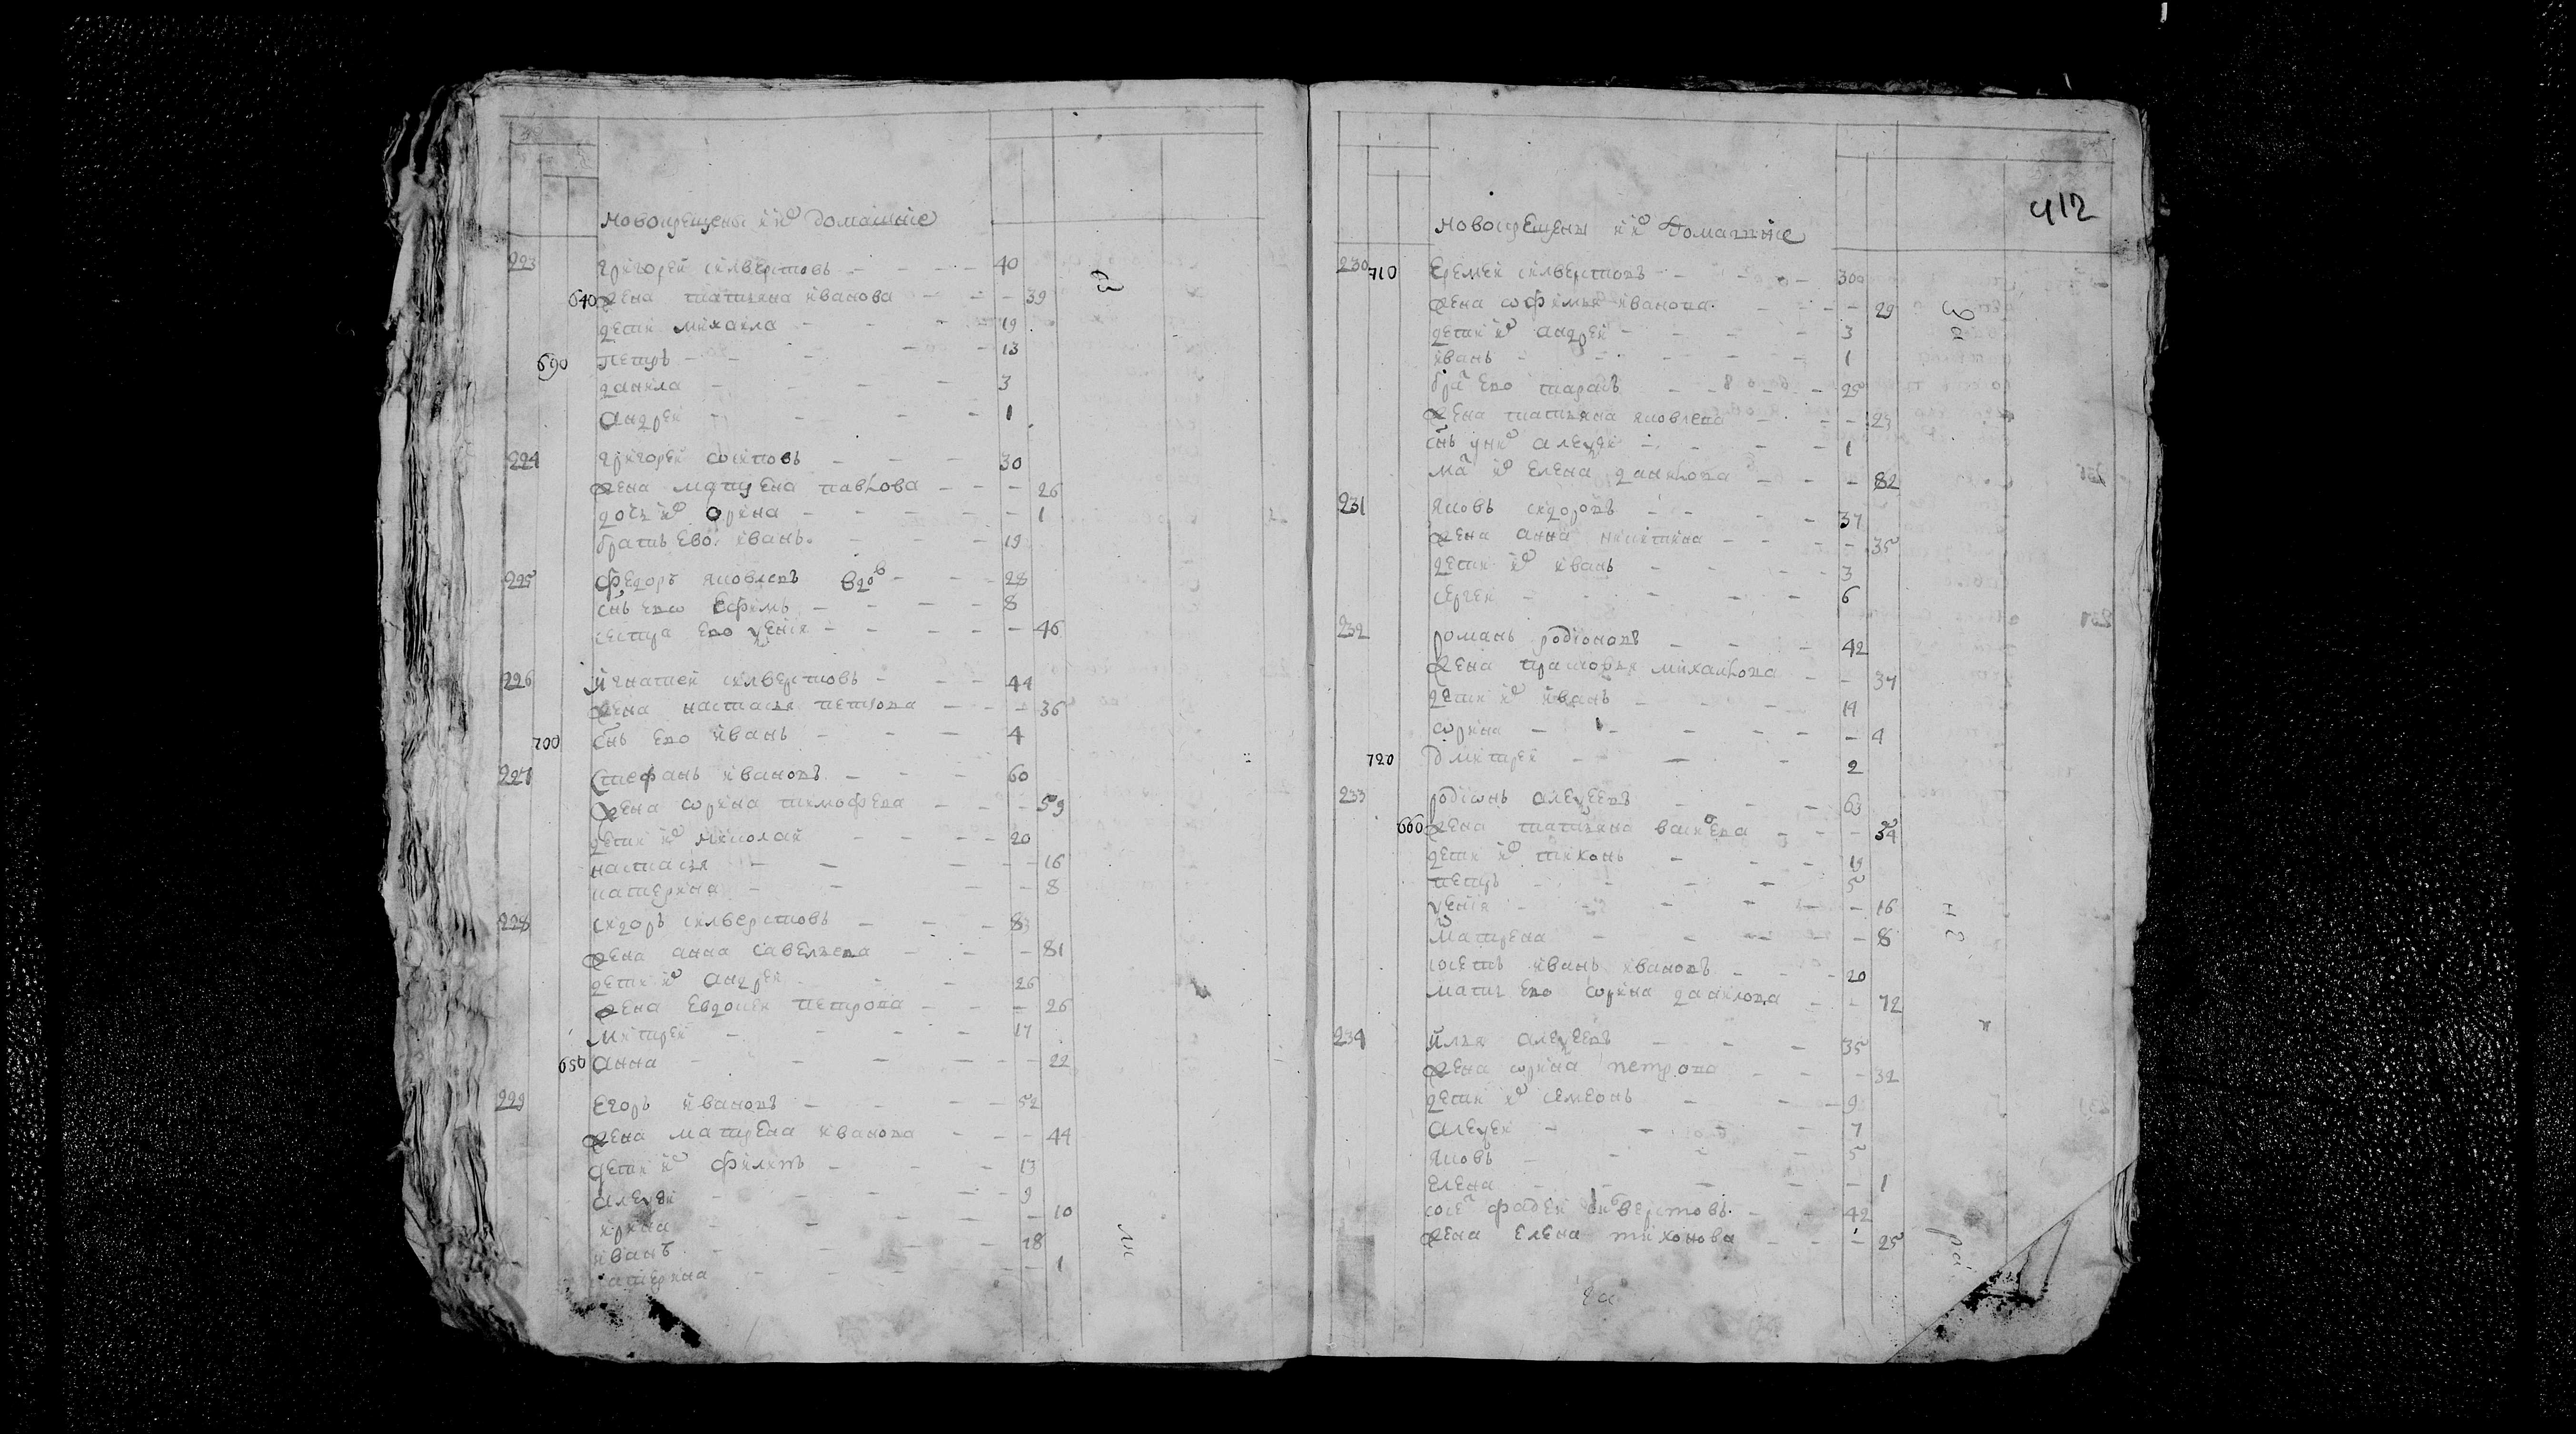 новокрещены и ихъ домашние
223 григорей силверстовъ - - - 40
640 жена татьяна иванова - - - 39
дети михаила - - - 19
690 петръ - - - 13
данила - - - 3
андрей - - - 1
224 григорей осиповъ - - - 30
жена матрена павлова - - - 26
дочь их орина - - - 1
братъ ево иванъ - - - 19
225 федоръ яковлевъ вдовъ - - 28
снъ ево ефимъ - - - 8
сестра ево ксения - - - 46
226 игнатей силверстовъ - - - 44
жена настасья петрова - - - 36
700 снъ ево иванъ - - - 4
227 стефанъ ивановъ - - - 60
жена орина тимофева - - - 59
дети их николай - - - 20
настасья - - - 16
катерина - - - 8
228 сидоръ силверстовъ - - - 83
жена анна савельева - - - 81
дети их андрей - - - 26
жена евдокия петрова - - - 26
митрей - - - 17
650 анна - - - 22
229 егоръ ивановъ - - - 52
жена матрена иванова - - - 44
дети их филипъ - - - 13
алексей - - - 9
ирина - - - 10
иванъ - - - 18
катерина - - - 1
412
новокрещены и их домашние
230 710 еремей силверстовъ - - 300
жена софимья иванова - - - 29
дети их андрей - - - 3
иванъ - - - 1
бра ево тарасъ - - - 25
жена татьяна яковлева - - - 23
снъ у них алексей - - - 1
ма их елена данилова - - - 82
231 яковъ сидоровъ - - - 37
жена анна никитина - - - 35
дети их иванъ - - - 3
сергей - - - 6
232 романъ родионовъ - - - 42
жена прасковья михаилова - - 37
дети их иванъ - - - 14
орина - - - 4
720 дмитрей - - - 2
233 родионъ алексеевъ - - - 63
660 жена татьяна васильева - - - 34
дети их тихонъ - - - 19
петръ - - - 5
ксения - - - 16
матрена - - - 8
иванъ ивановъ - - - 20
мать ево орина данилова - - 72
234 илья алексеевъ - - - 35
жена орина петрова - - - 32
дети их семеонъ - - - 9
алексей - - - 7
яковъ - - - 5
елена - - - 1
фадей силверстовъ - - 42
жена елена тихонова - - - 25